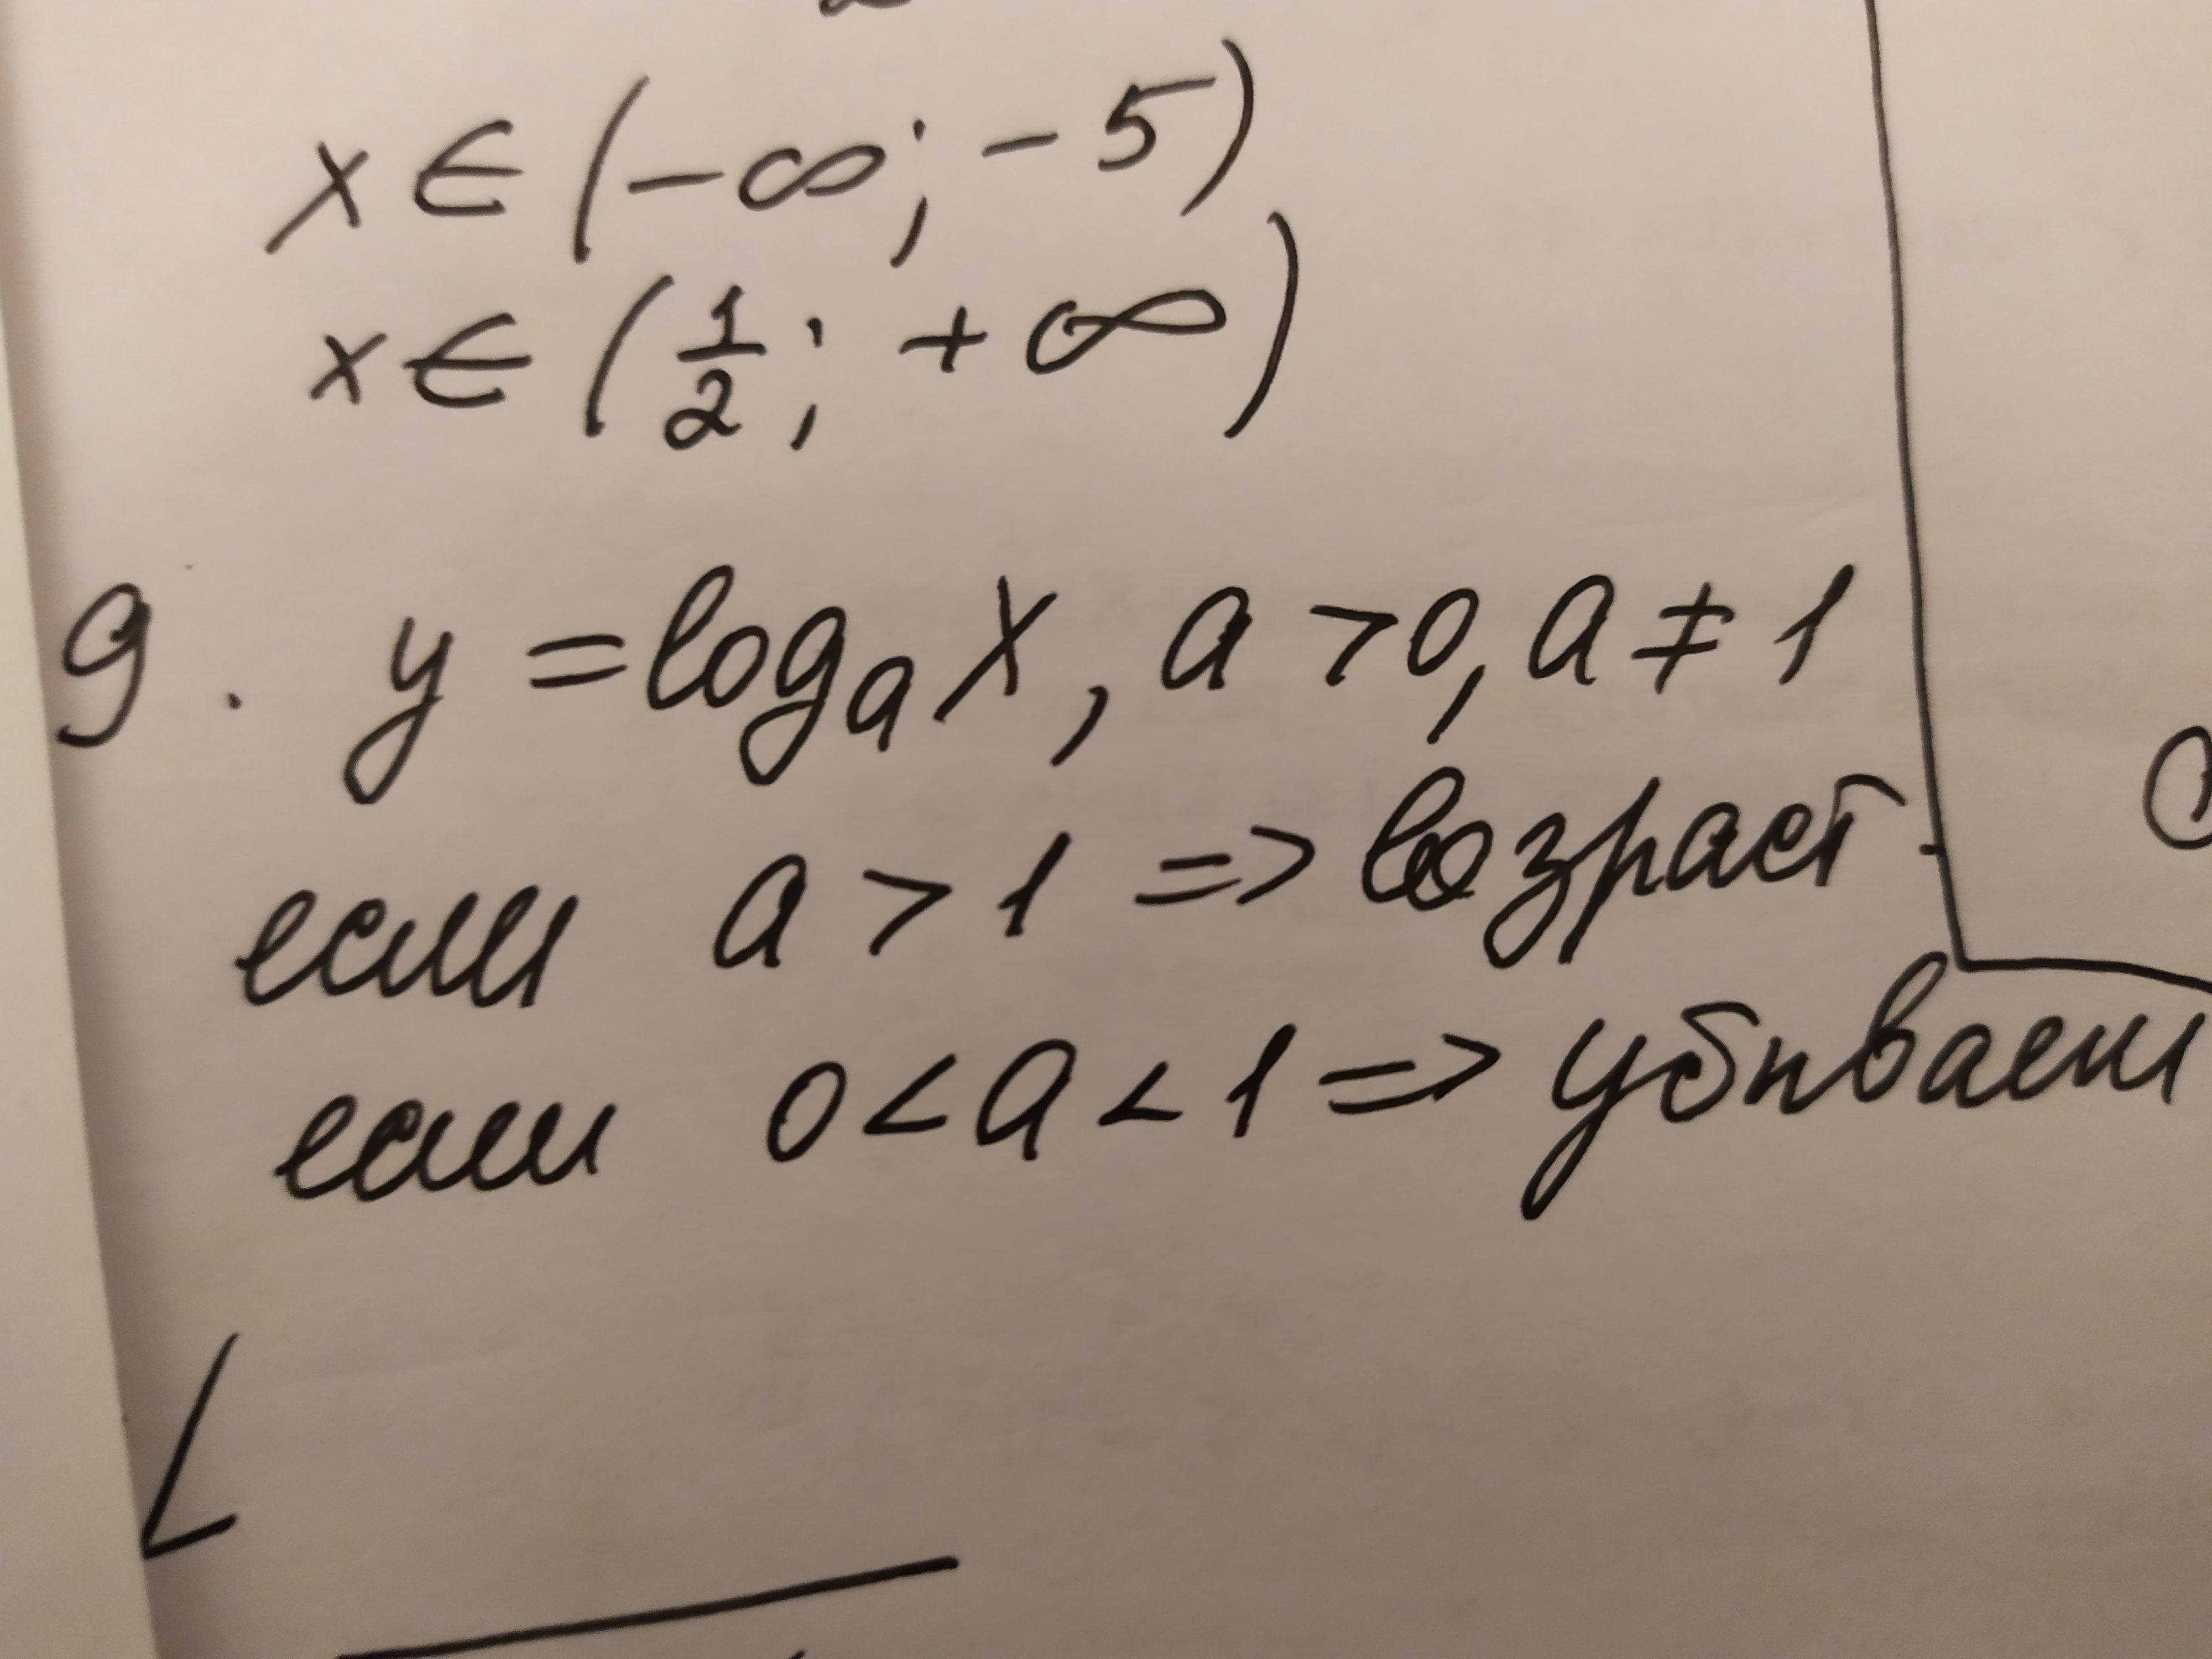 x ∈ (-∞; -5)
x ∈ (1/2; +∞)
9. y = logₐ x, a > 0, a ≠ 1
если a > 1 => возраст.
если 0 < a < 1 => убывает